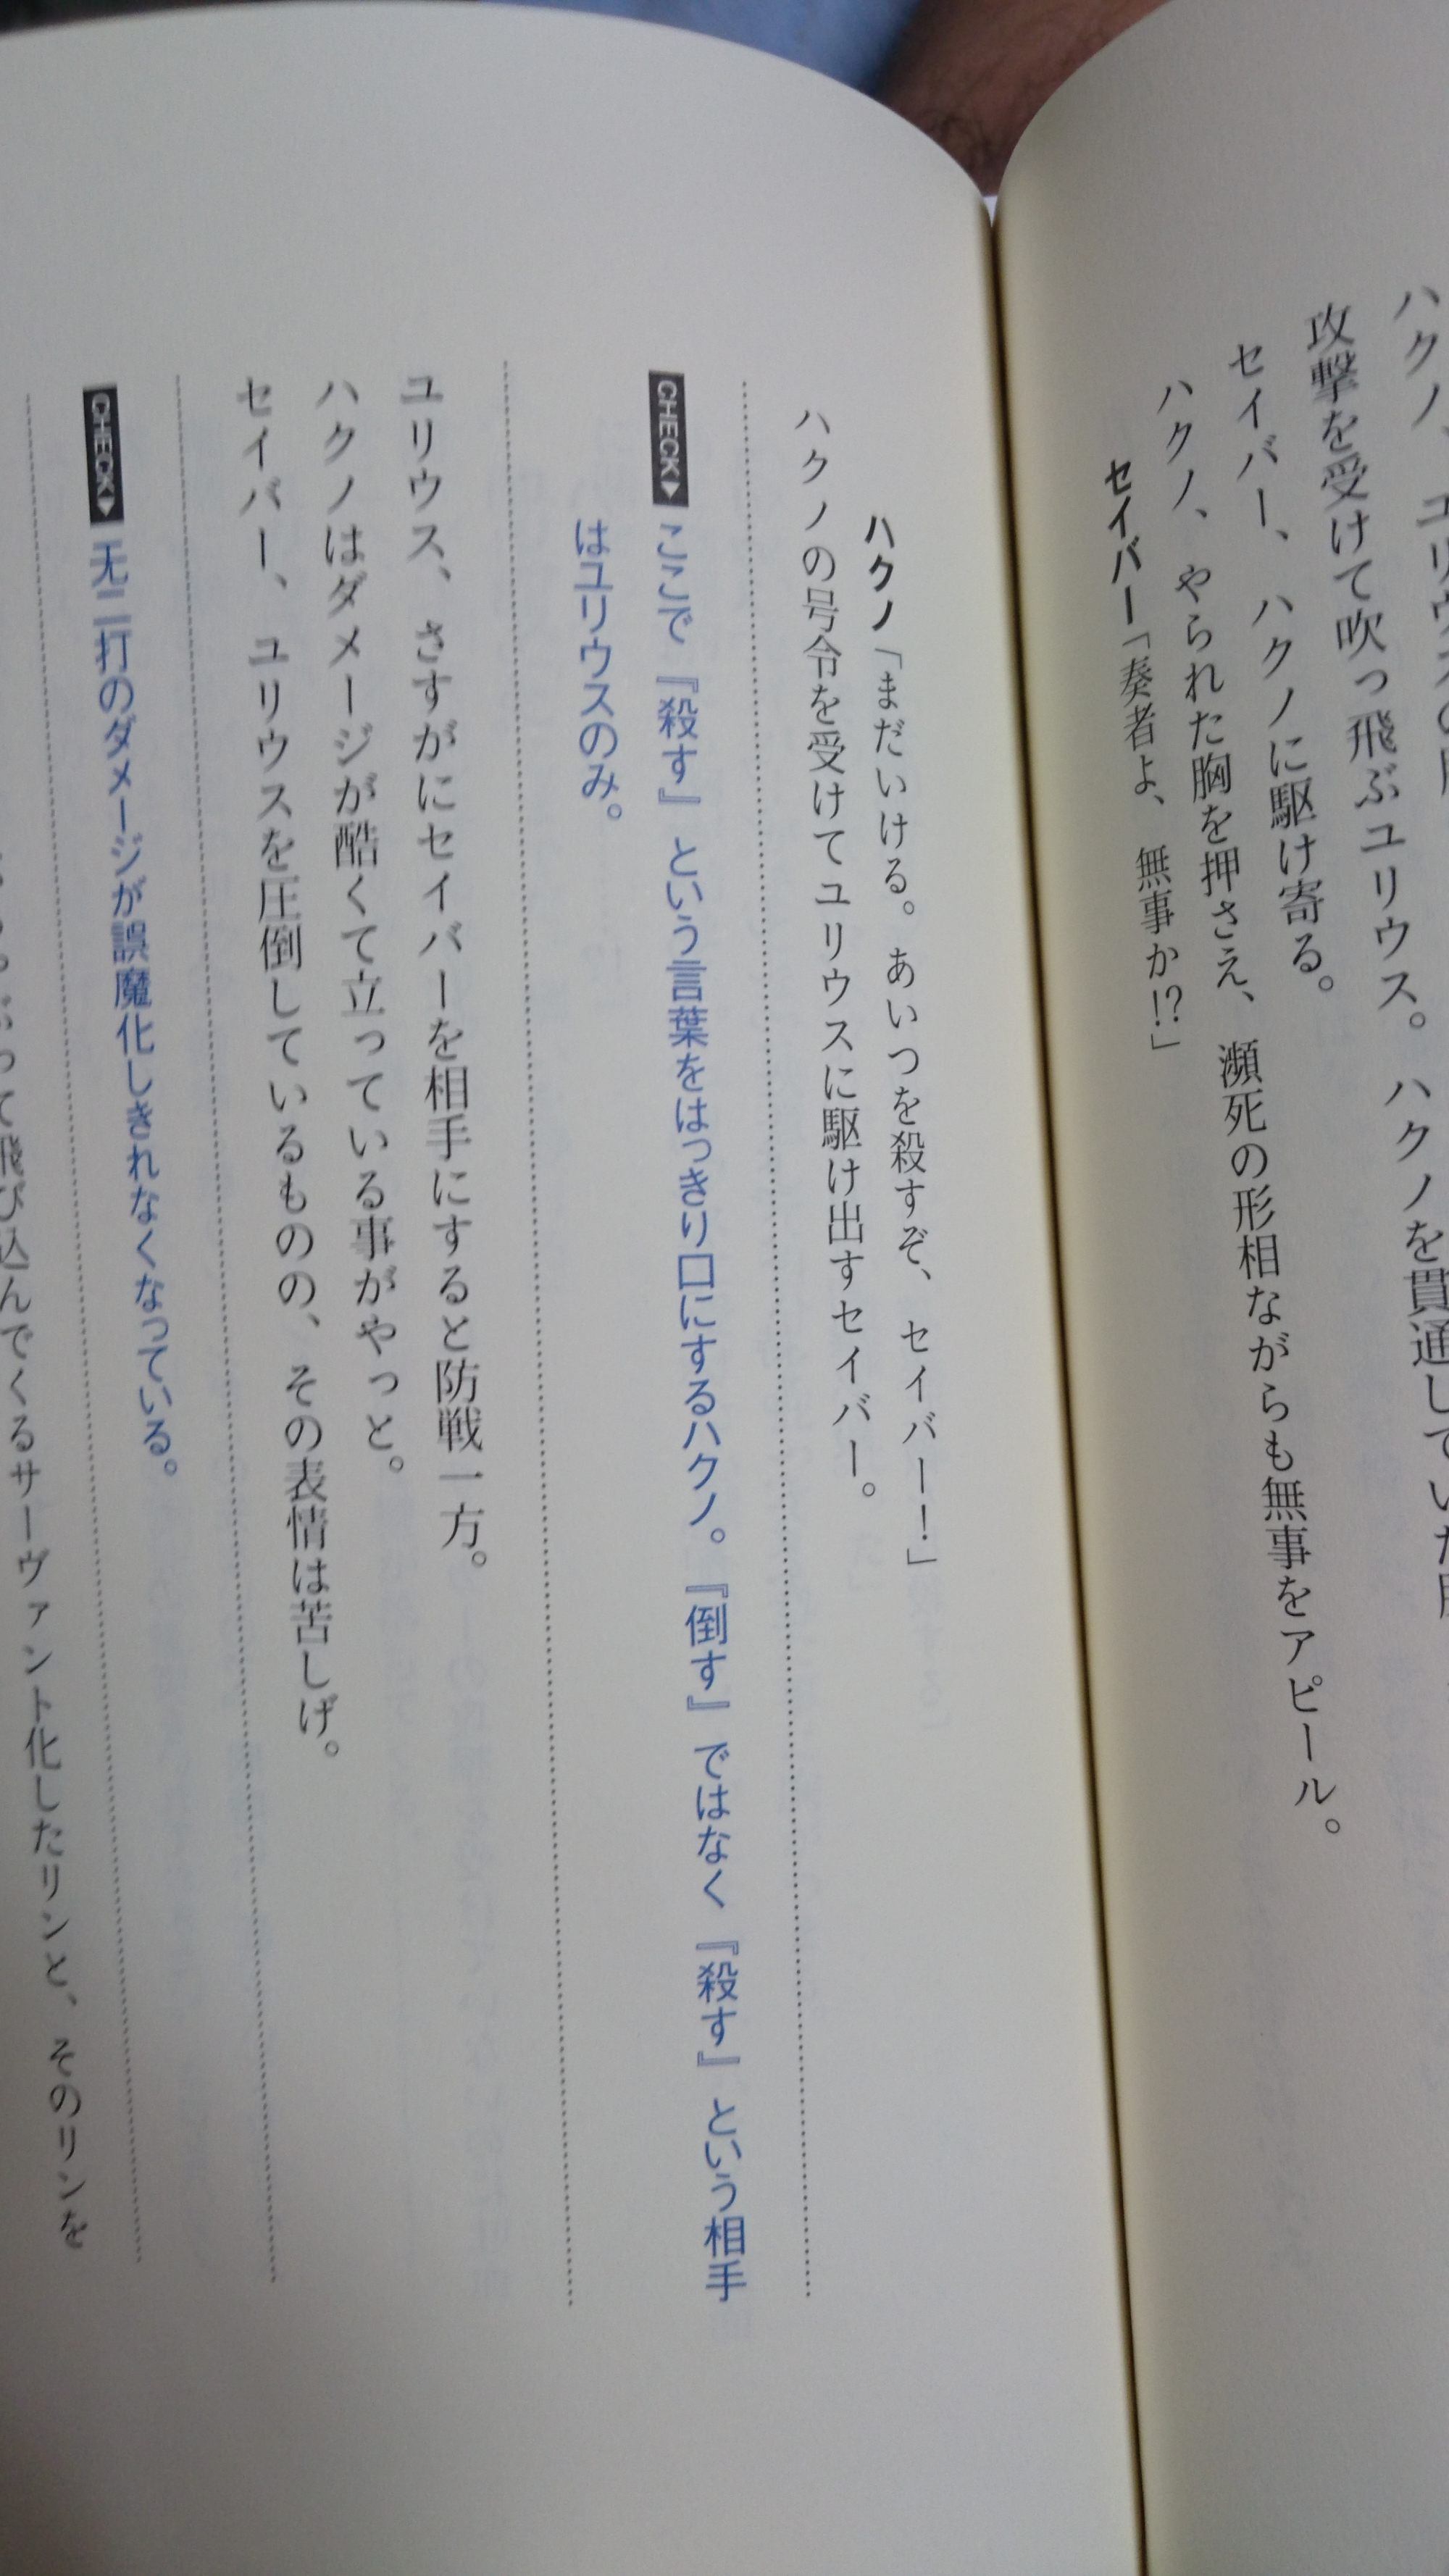 ハクノ、ユリウスの
攻撃を受けて吹っ飛ぶユリウス。ハクノを貫通していた
セイバー、ハクノに駆け寄る。
ハクノ、やられた胸を押さえ、瀕死の形相ながらも無事をアピール。
セイバー「奏者よ、無事か!?」
ハクノ「まだいける。あいつを殺すぞ、セイバー！」
ハクノの号令を受けてユリウスに駆け出すセイバー。
CHECK▶ここで『殺す』という言葉をはっきり口にするハクノ。『倒す』ではなく『殺す』という相手
はユリウスのみ。
ユリウス、さすがにセイバーを相手にすると防戦一方。
ハクノはダメージが酷くて立っている事がやっと。
セイバー、ユリウスを圧倒しているものの、その表情は苦しげ。
CHECK▶无二打のダメージが誤魔化しきれなくなっている。
って飛び込んでくるサーヴァント化したリンと、そのリンを